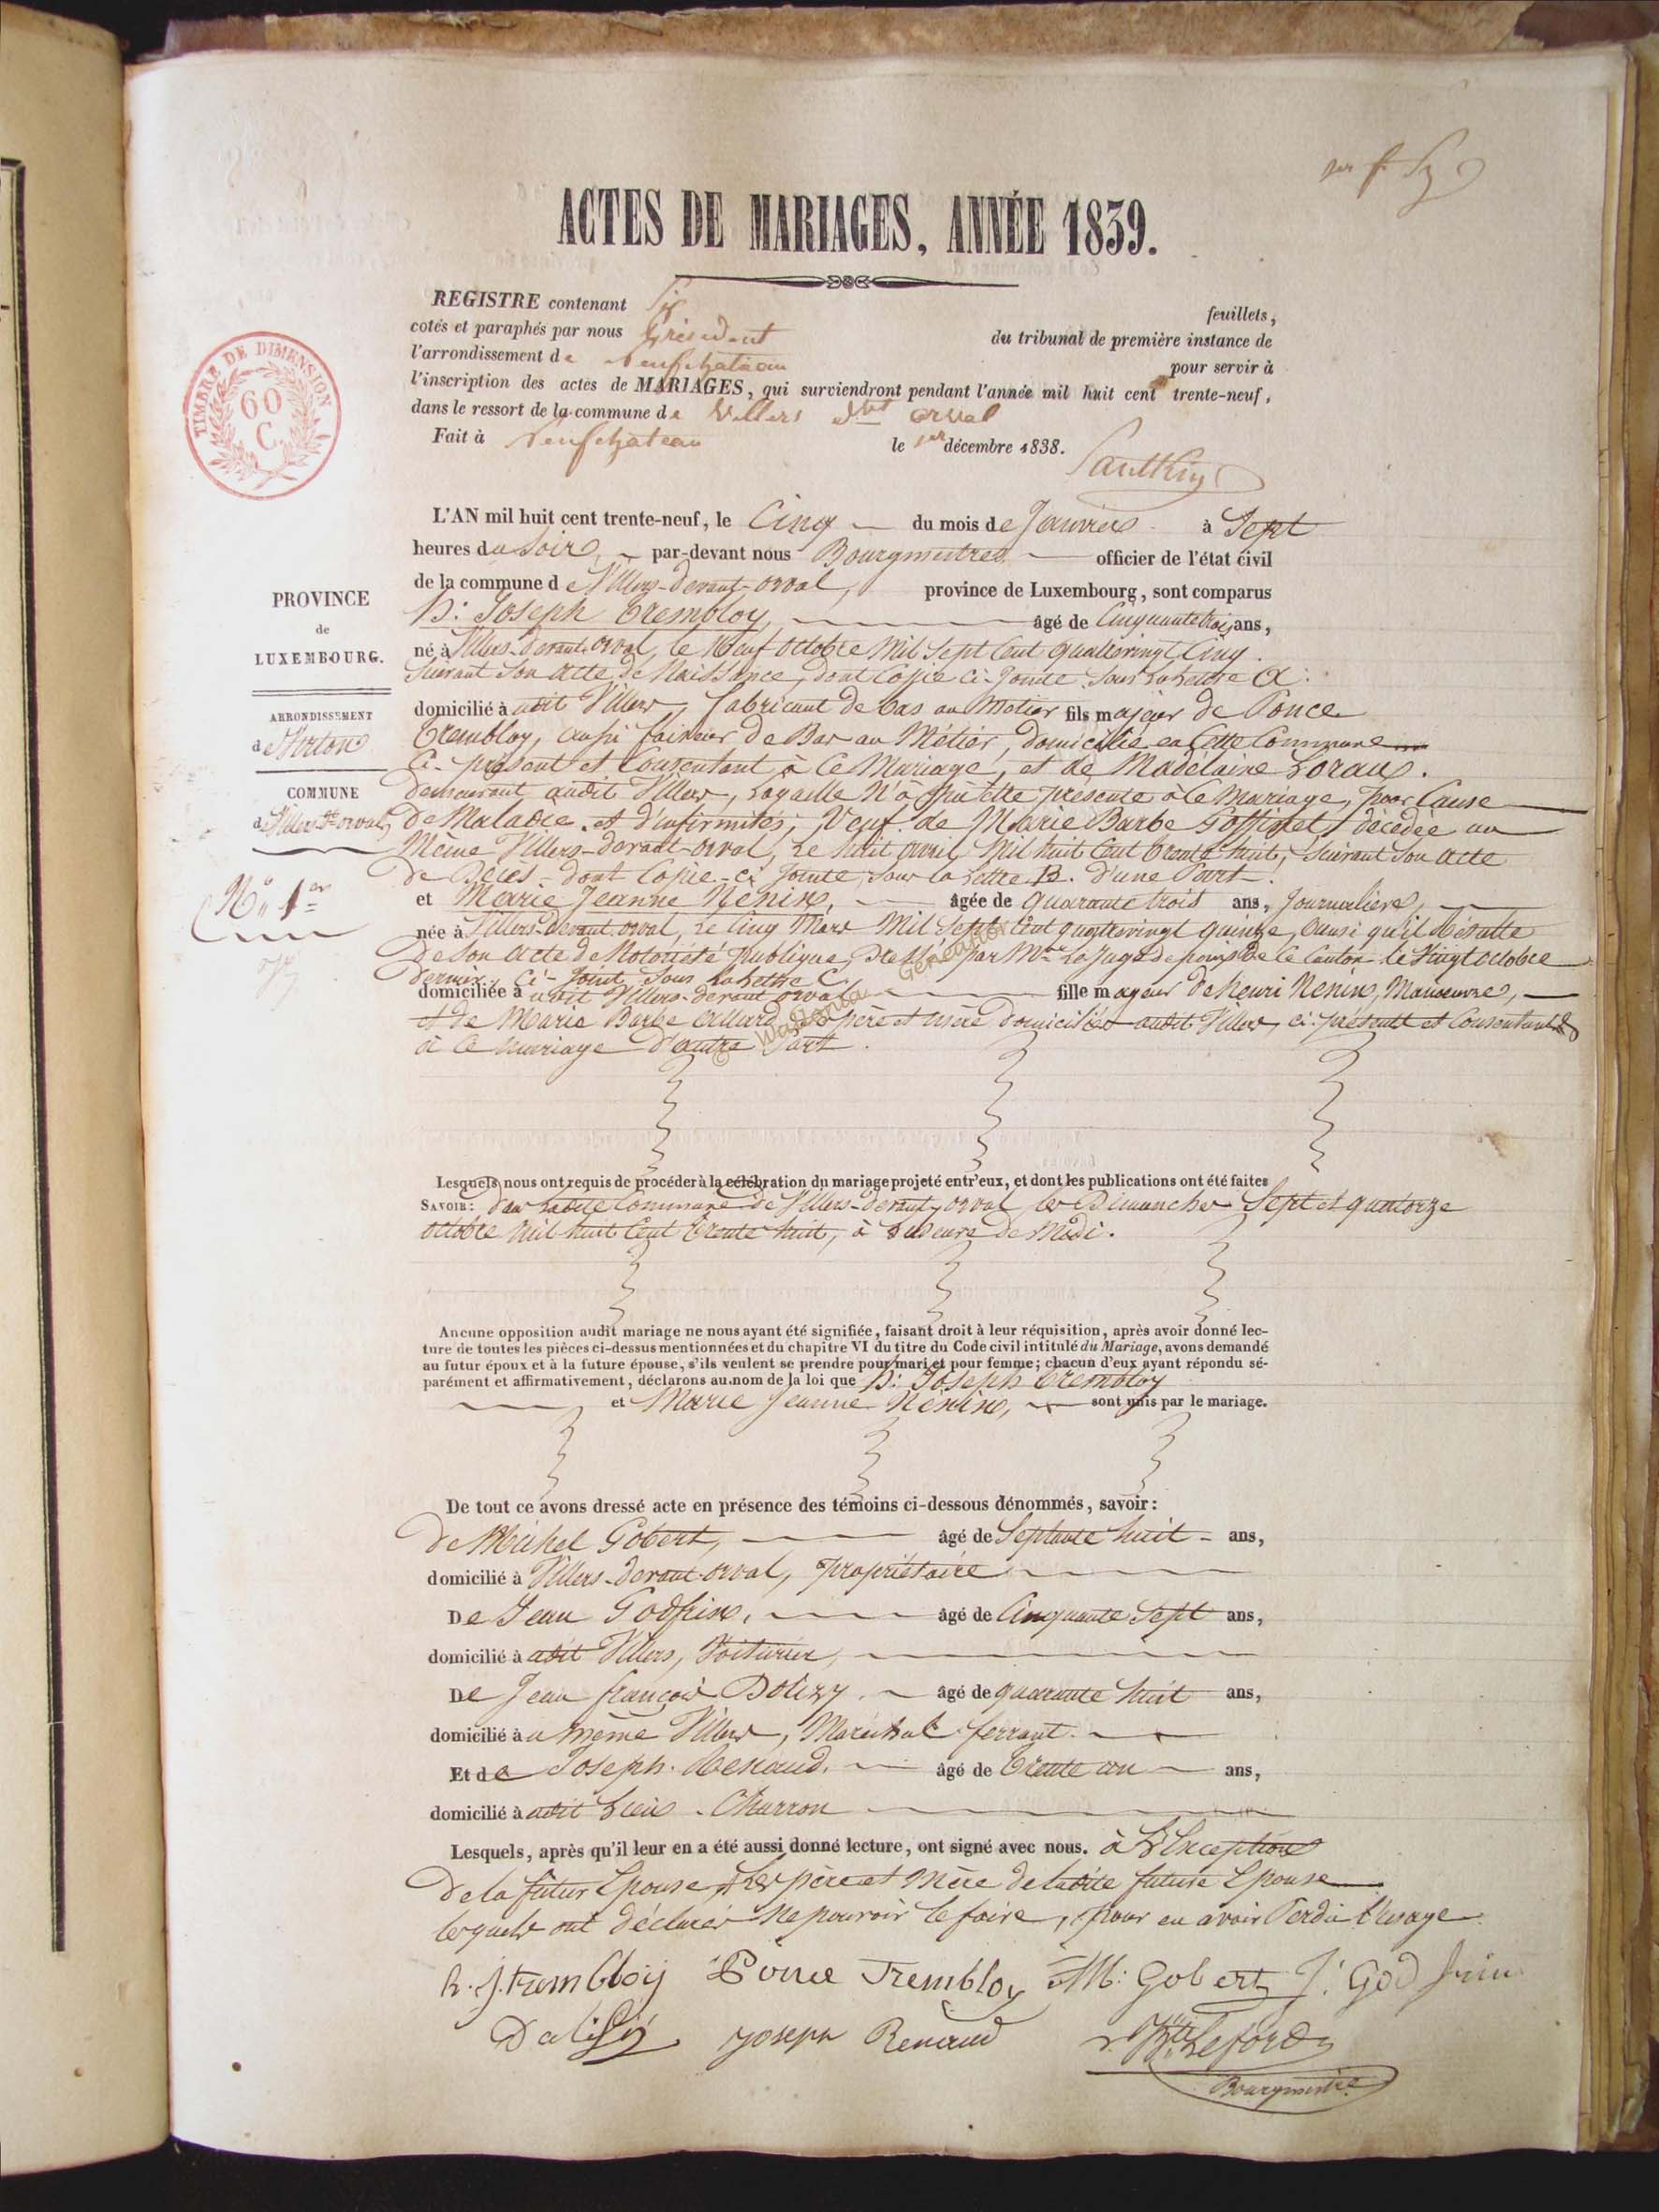 ACTES DE MARIAGES, ANNÉE 1839.
REGISTRE contenant Six feuillets,
cotés et paraphés par nous Président du tribunal de première instance de
l'arrondissement de Neufchateau pour servir à
l'inscription des actes de MARIAGES, qui surviendront pendant l'année mil huit cent trente-neuf,
dans le ressort de la commune de Villers dvt orval
Fait à Neufchateau le 1er décembre 1838.
TIMBRE DE DIMENSION
60
C.
L'AN mil huit cent trente-neuf, le Cinq du mois de Janvier à Sept
heures du Soir, par-devant nous Bourgmestres officier de l'état civil
de la commune de Villers-devant-orval, province de Luxembourg, sont comparus
h: Joseph Trembloy, âgé de Cinquante trois ans,
né à Villers-devant-orval, le Neuf octobre Mil Sept Cent quatrevingt Cinq.
Suivant Son acte de Naissance, dont Copie Ci-Jointe Sous La Lettre A.
domicilié à udit Villers, fabricant de bas au métier fils majeur de Ponce
Trembloy, aussi faiseur de Bas au Métier, domicilié en Cette Commune
Ci-présent et Consentant à Ce Mariage, et de Madelaine Loraux.
demeurant audit Villers, Laquelle N'a pu être présente à Ce Mariage, pour Cause
De Maladie et d'infirmités; Veuf de Marie Barbe Goffinet, décédée au
Même Villers-devant-orval, Le huit avril Mil huit Cent trente huit, Suivant Son acte
de Décès - dont Copie - ci Jointe, Sous La Lettre B. d'une Part.
et Marie Jeanne Nénin, âgée de quarante trois ans, Journalière,
née à Villers-devant-orval, Le Cinq Mars Mil Sept Cent quatrevingt quinze, Ainsi qu'il Résulte
De Son acte de Notoriété publique, Dressé par Mr. Le Juge de paix de Ce Canton Le Vingt octobre
dernier, Ci-Joint Sous La Lettre C.
domiciliée à udit Villers-devant orval fille majeur de henri Nenin, Manoeuvre,
et de Marie Barbe Allard, Ses père et mère domiciliés audit Villers, ci-présents et Consentants
à Ce Mariage D'autre Part.
© Wallonia Généalogie
PROVINCE
de
LUXEMBOURG.
ARRONDISSEMENT
de Virton
COMMUNE
de Villers dt orval
No. 1er
Lesquels nous ont requis de procéder à la célébration du mariage projeté entr'eux, et dont les publications ont été faites
SAVOIR: dans Ladite Commune de Villers-devant-orval les Dimanches Sept et quatorze
octobre Mil huit Cent trente huit, à L'heure de Midi.
Aucune opposition audit mariage ne nous ayant été signifiée, faisant droit à leur réquisition, après avoir donné lec-
ture de toutes les pièces ci-dessus mentionnées et du chapitre VI du titre du Code civil intitulé du Mariage, avons demandé
au futur époux et à la future épouse, s'ils veulent se prendre pour mari et pour femme; chacun d'eux ayant répondu sé-
parément et affirmativement, déclarons au nom de la loi que h: Joseph Trembloy
et Marie Jeanne Nénin, sont unis par le mariage.
De tout ce avons dressé acte en présence des témoins ci-dessous dénommés, savoir:
de Michel Gobert, âgé de Septante huit ans,
domicilié à Villers-devant-orval, propriétaire
De Jean Godfrin, âgé de Cinquante Sept ans,
domicilié à udit Villers, Voiturier,
De Jean françois Dolizy âgé de quarante huit ans,
domicilié à u même Villers, Maréchal ferrant.
Et de Joseph Renaud. âgé de trente un ans,
domicilié à udit Lieu - Charron
Lesquels, après qu'il leur en a été aussi donné lecture, ont signé avec nous. à L'Exception
De la futur Epouse, Les père et Mère de ladite future Epouse
lesquels ont déclarés Ne pouvoir le faire, pour en avoir Perdu l'usage.
h. j. trembloÿ Ponce Trembloy M: Gobert J: Godfrin
Dalisÿ joseph Renaud Leford
Bourgmestre